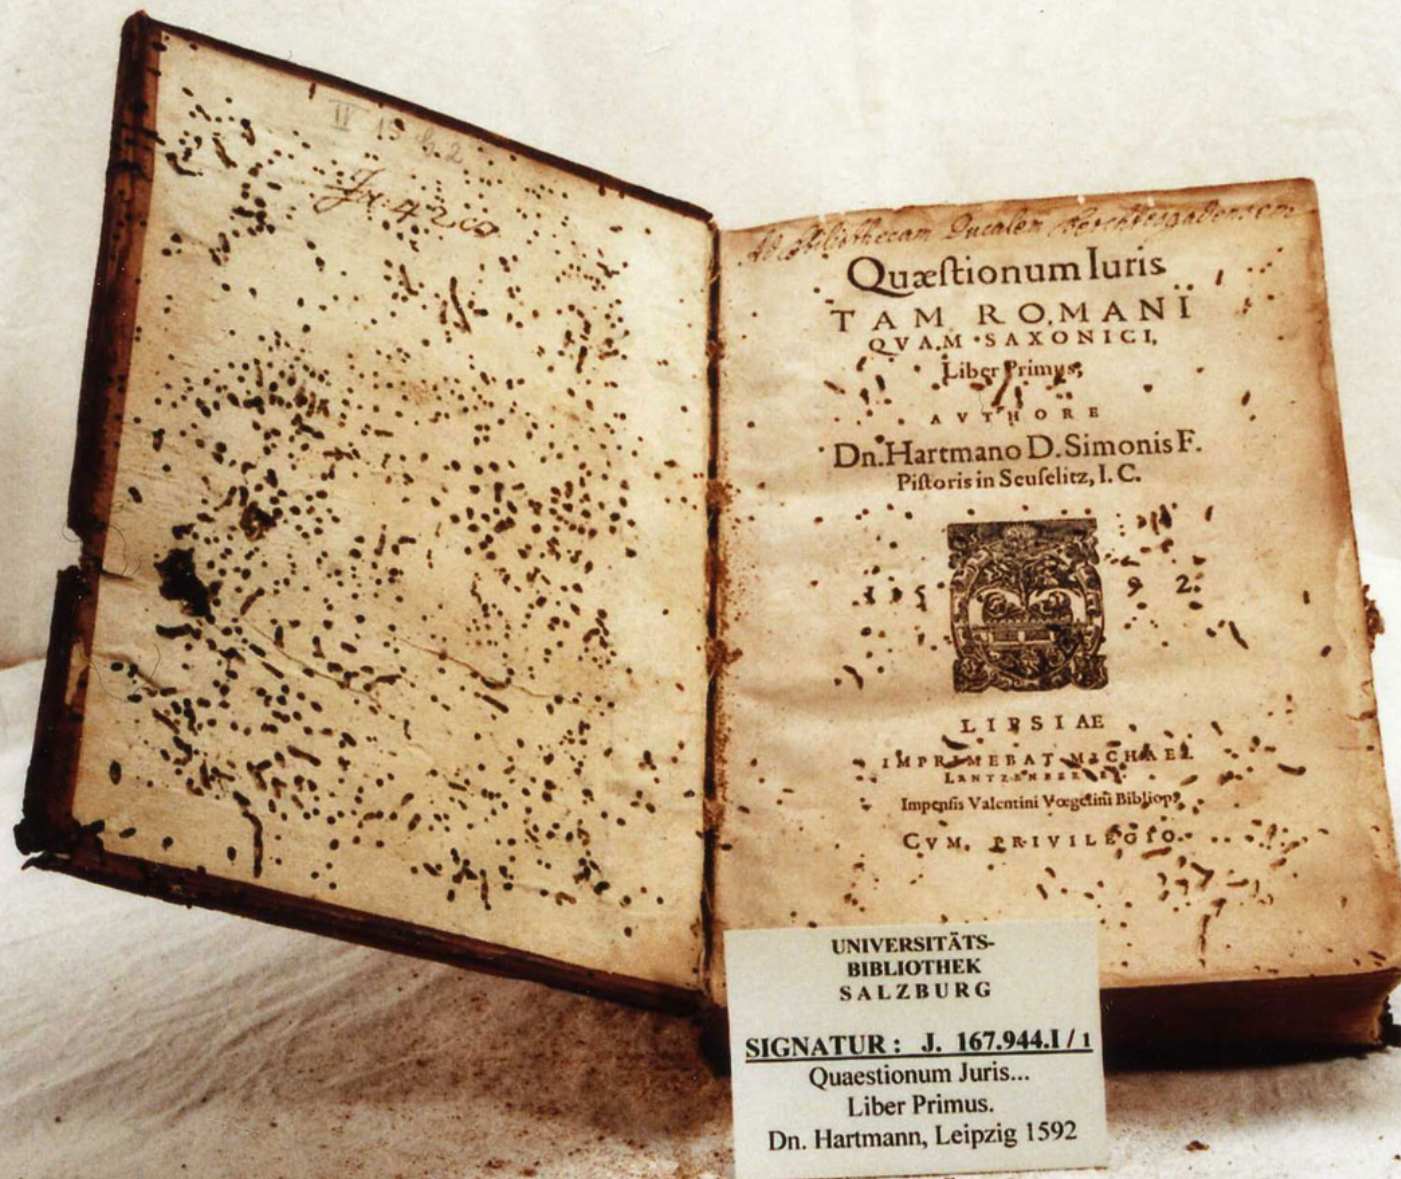 II 19 b. 2
Ad Bibliothecam Ducalem Berchtesgadensem
Quæſtionum Iuris
TAM ROMANI
QVAM SAXONICI,
Liber Primus,
AVTHORE
Dn. Hartmano D. Simonis F.
Piſtoris in Seuſelitz, I. C.
1 5 9 2.
LIPSIAE
IMPRIMEBAT MICHAEL
LANTZENBERGER.
Impenſis Valentini Vœgelini Bibliop.
CVM PRIVILEGIO.
UNIVERSITÄTS-
BIBLIOTHEK
SALZBURG
SIGNATUR: J. 167.944.I / 1
Quaestionum Juris...
Liber Primus.
Dn. Hartmann, Leipzig 1592